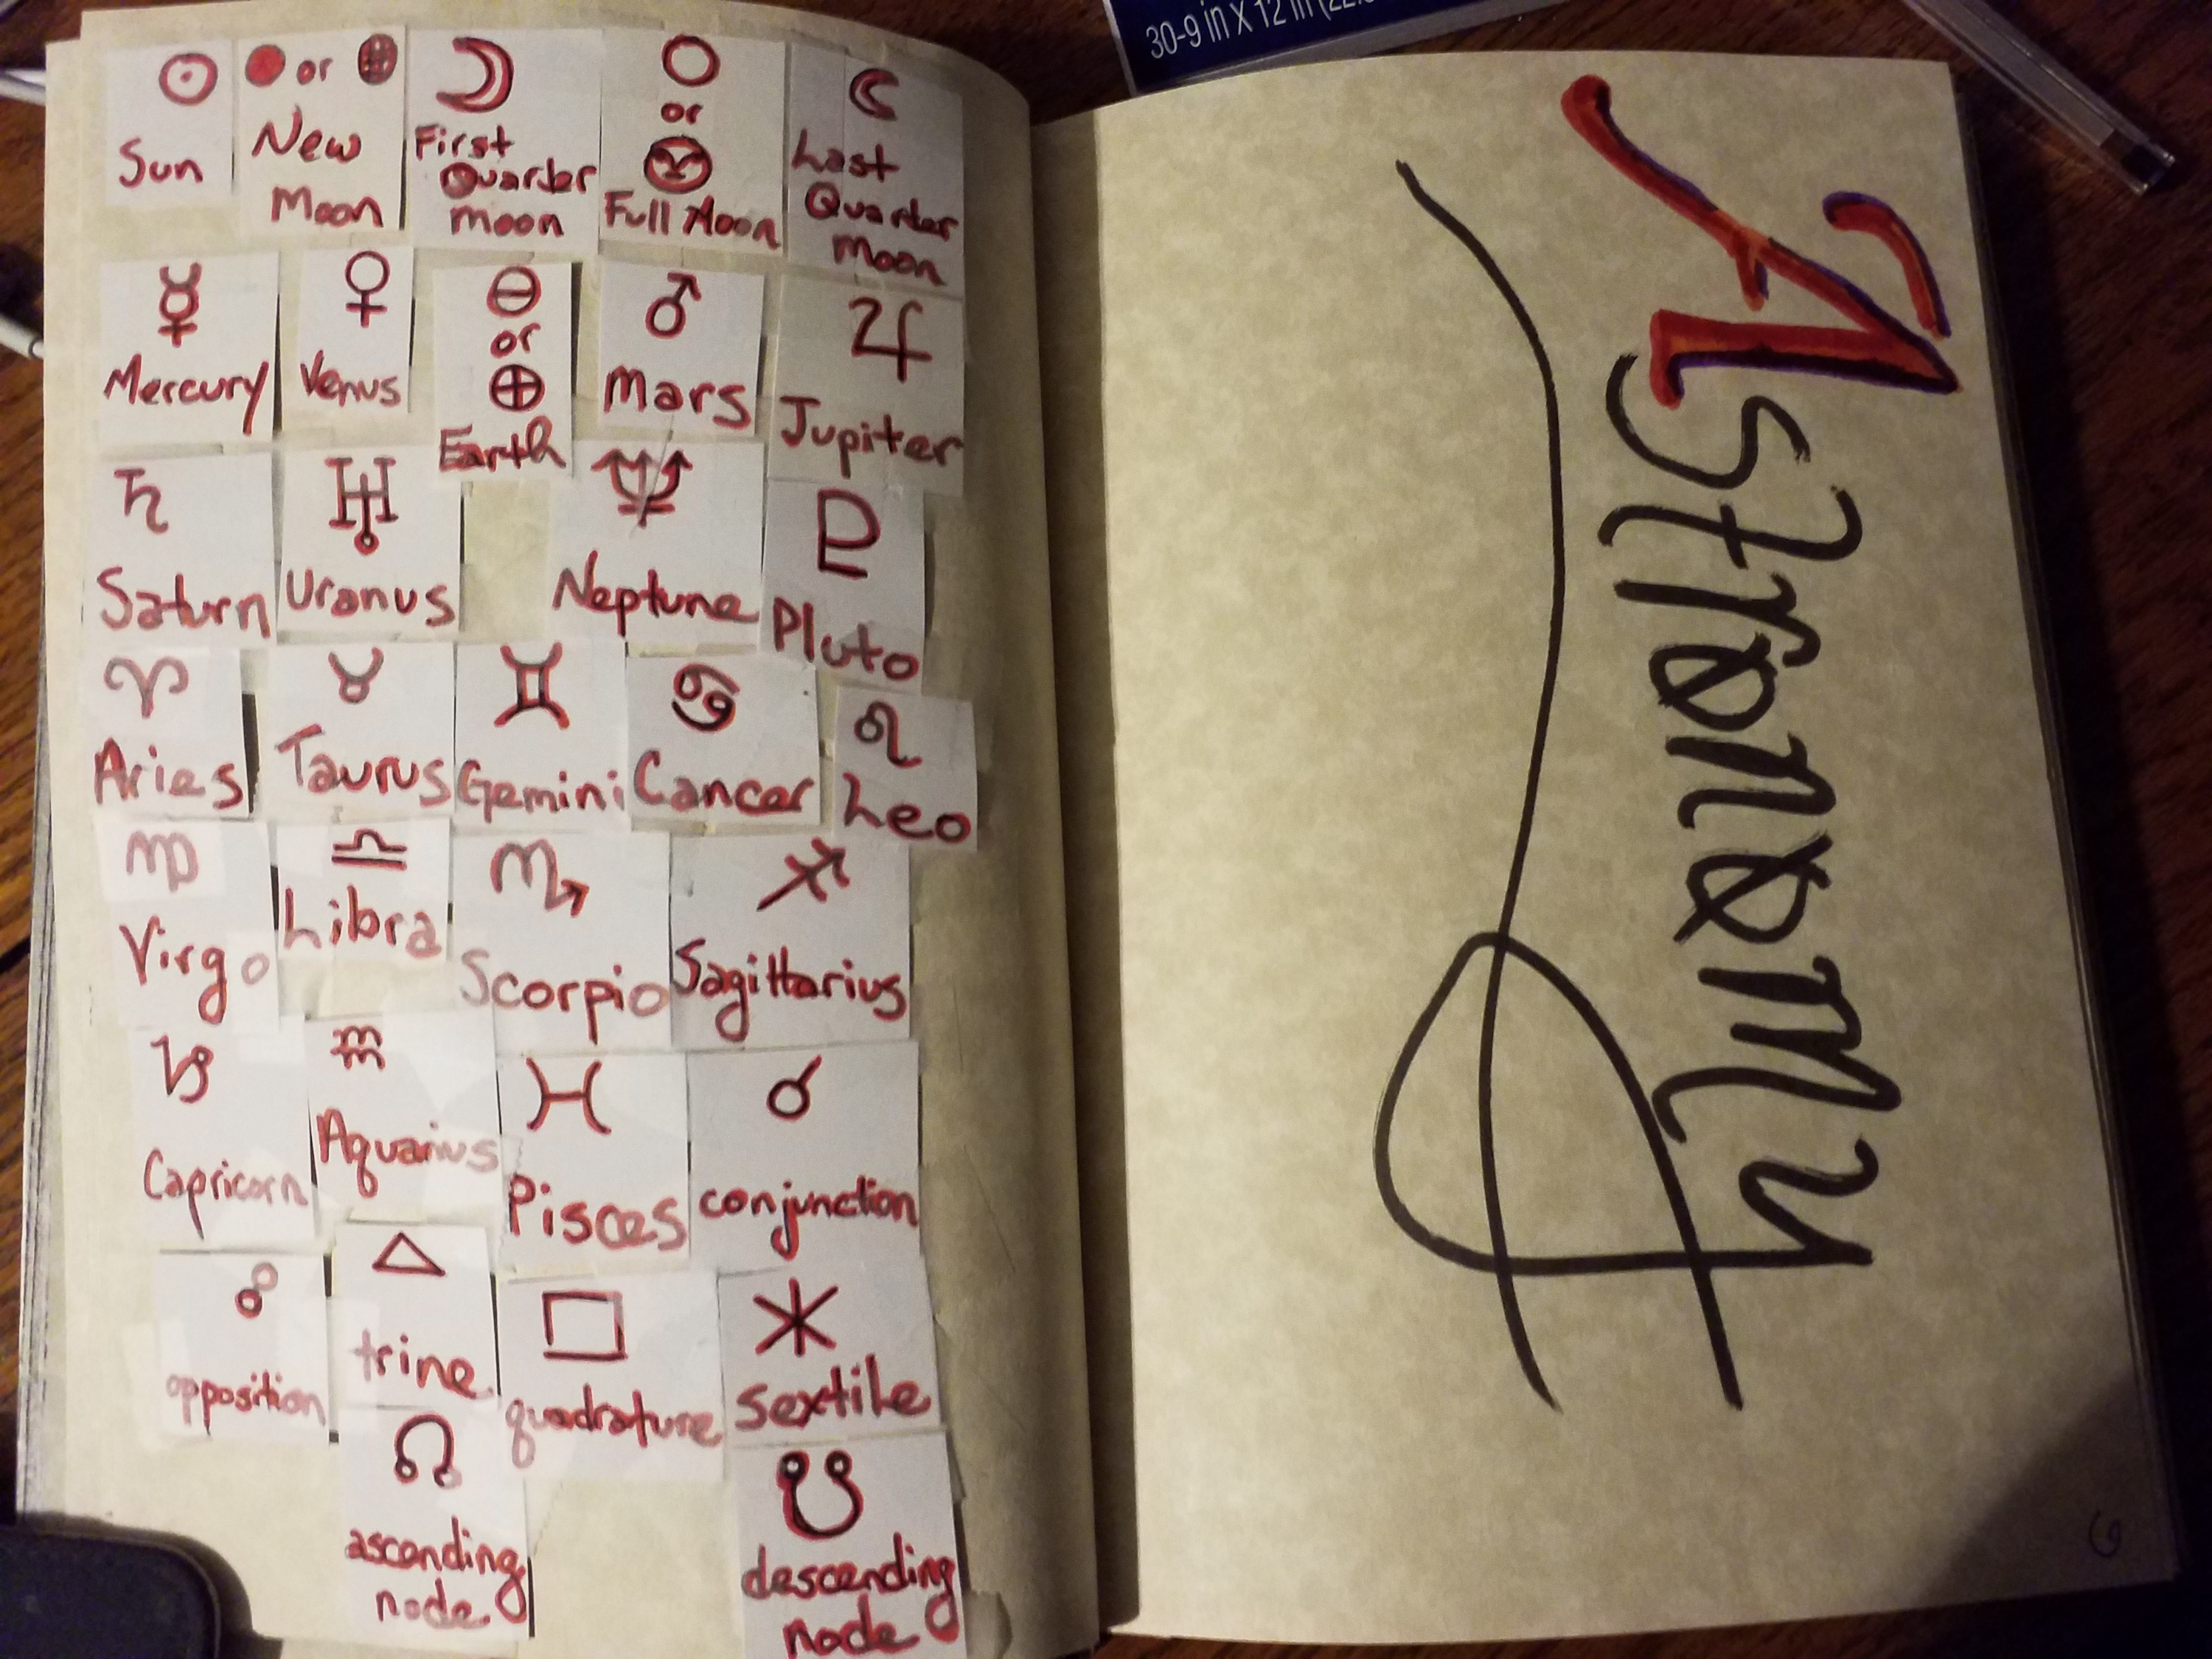 30-9 in X 12 in (22.
Sun
or
New
Moon
First
Quarter
moon
or
Full Moon
Last
Quarter
Moon
Mercury
Venus
or
Earth
Mars
Jupiter
Saturn
Uranus
Neptune
Pluto
Aries
Taurus
Gemini
Cancer
Leo
Virgo
Libra
Scorpio
Sagittarius
Capricorn
Aquarius
Pisces
conjunction
opposition
trine
quadrature
sextile
ascending
node
descending
node
Astronomy
6